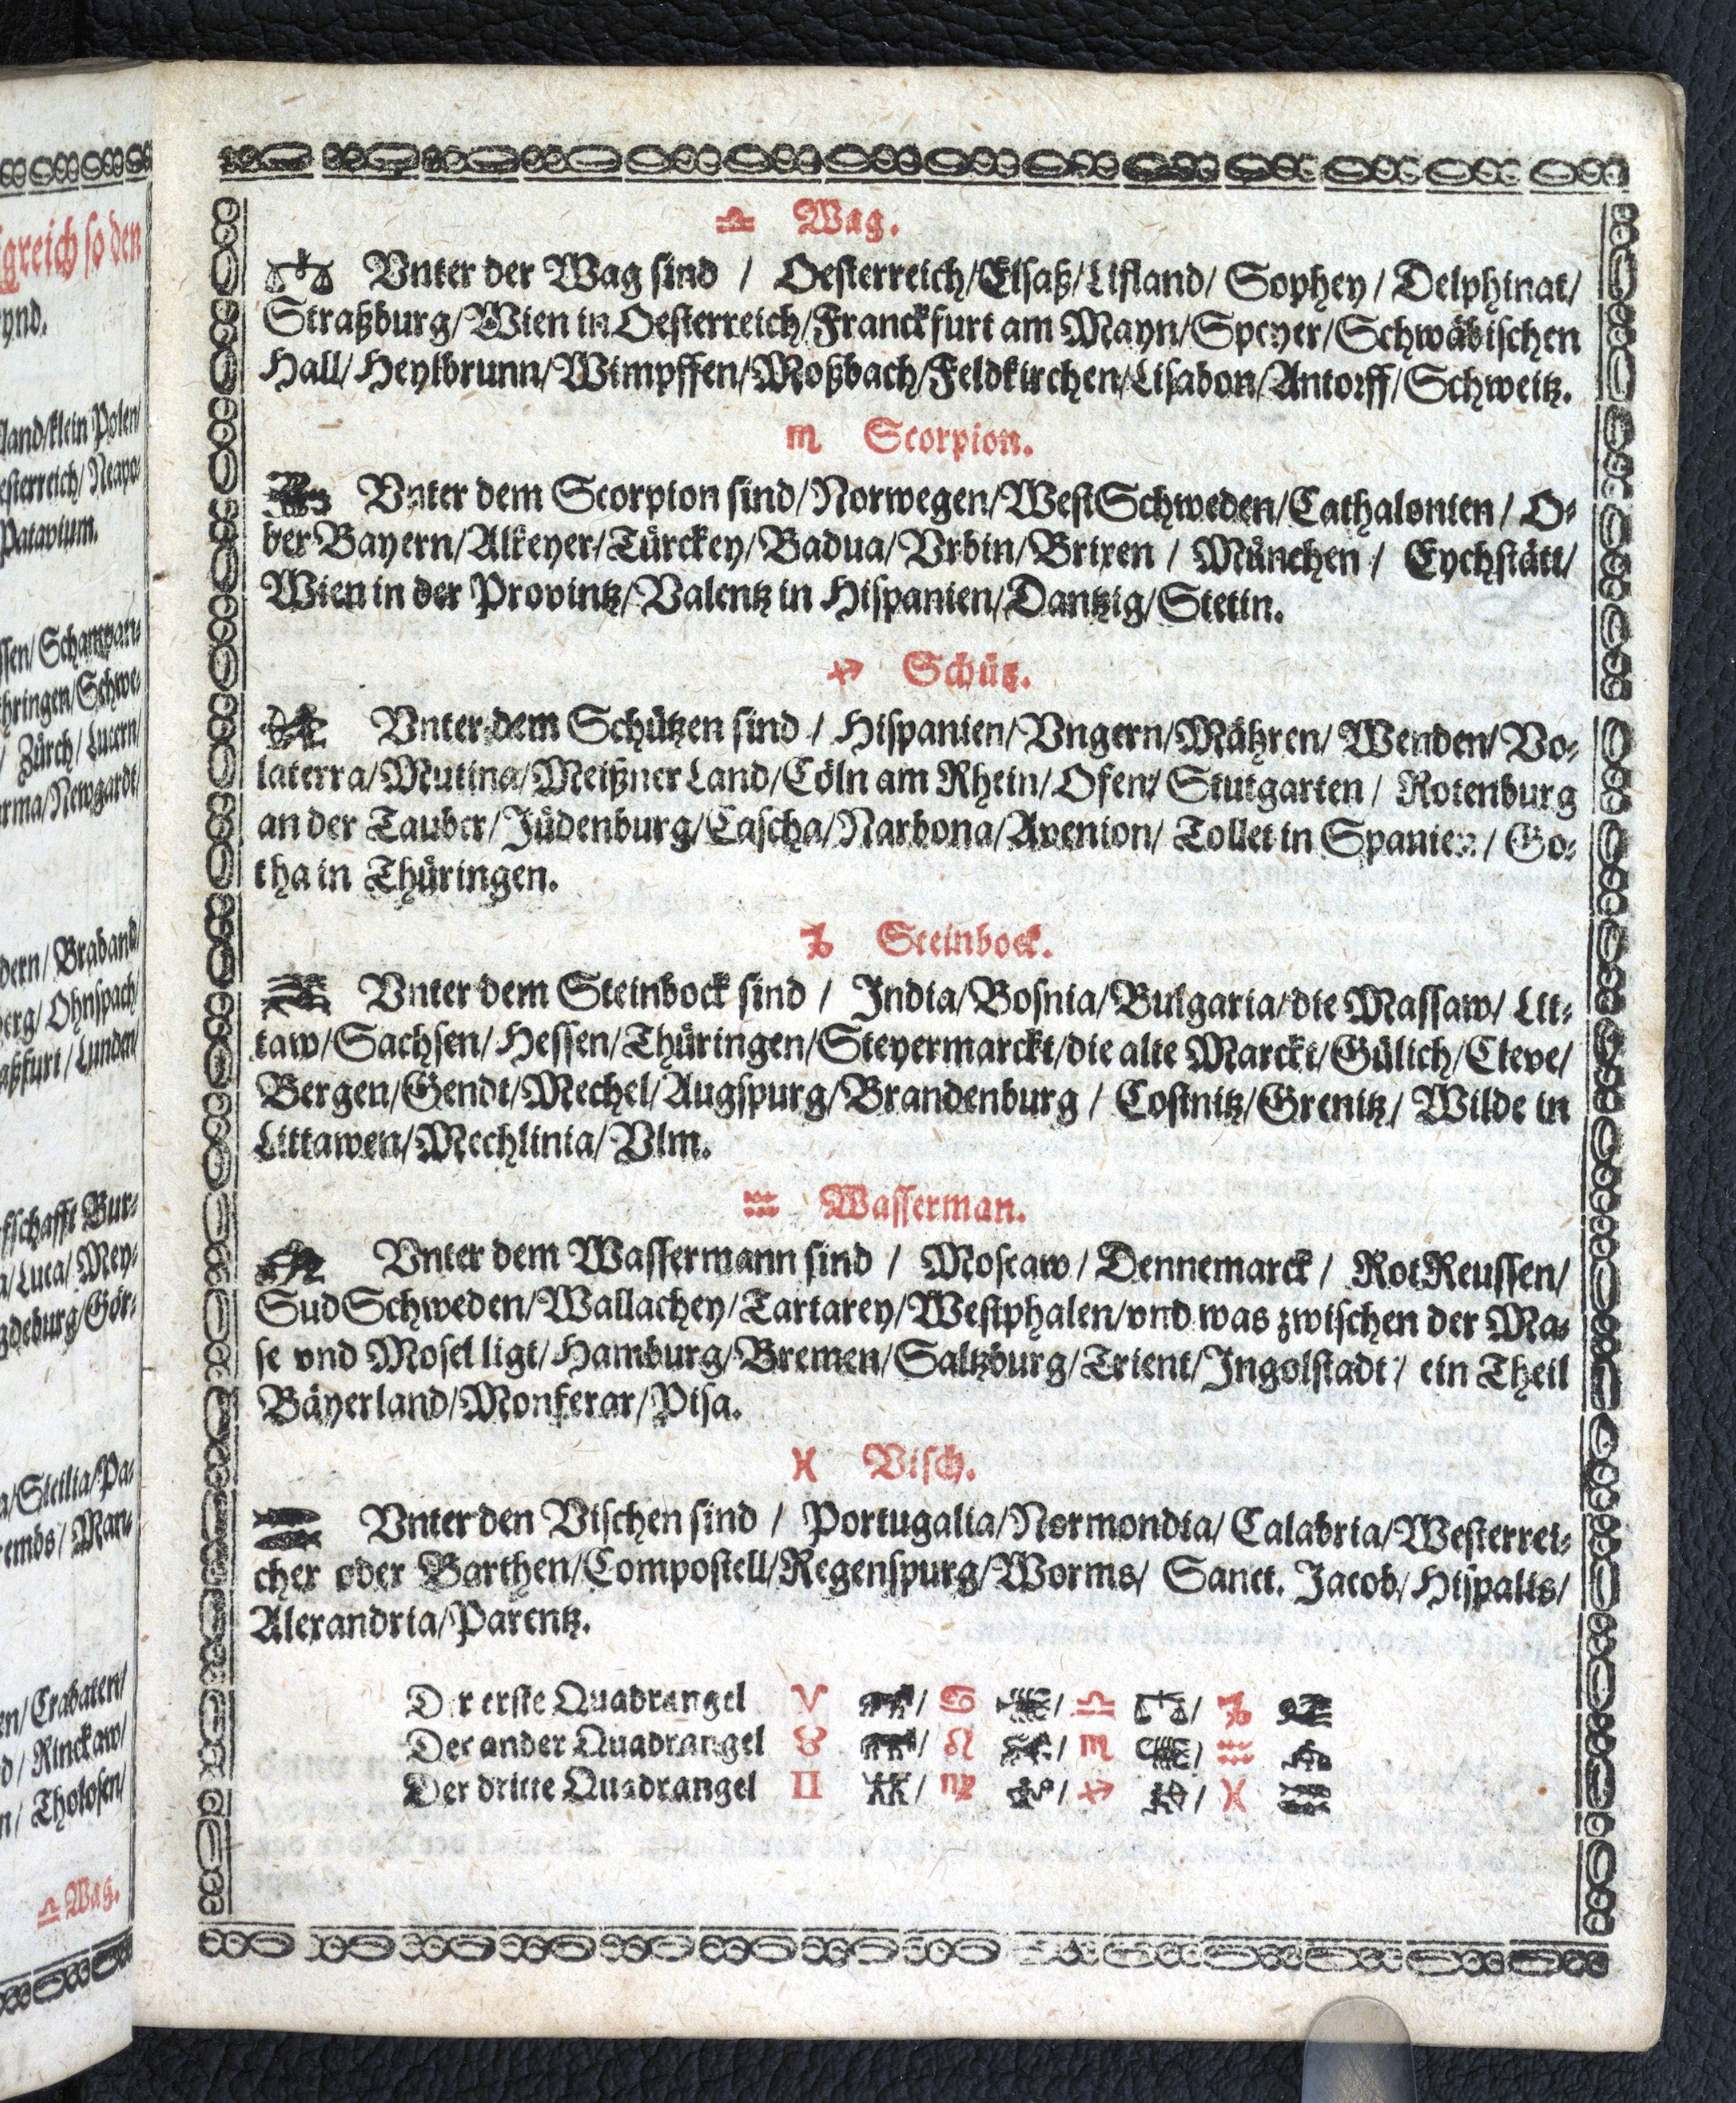 ♎ Wag.
Vnter der Wag sind / Oesterreich/Elsaß/Lifland/ Sophey / Delphinat/
Straßburg/Wien in Oesterreich/Franckfurt am Mayn/Speyer/Schwäbischen
Hall/Heylbrunn/Wimpffen/Moßbach/Feldkirchen/Lisabon/Antorff/Schweitz.
♏ Scorpion.
Vnter dem Scorpion sind/Norwegen/WestSchweden/Cathalonien / O-
ber Bayern/Alkeyer/Türckey/Badua/Vrbin/Brixen / München / Eychstätt/
Wien in der Provintz/Valentz in Hispanien/Dantzig/Stetin.
♐ Schütz.
Vnter dem Schützen sind / Hispanien/Vngern/Mähren/ Wenden/ Vo-
laterra/Mutina/Meißner Land/Cöln am Rhein/Ofen/ Stutgarten / Rotenburg
an der Tauber/Jüdenburg/Cascha/Narbona/Avenion/ Tollet in Spanien / Go-
tha in Thüringen.
♑ Steinbock.
Vnter dem Steinbock sind / India/Bosnia/Bulgaria/die Massaw/ Lit-
taw/Sachsen/Hessen/Thüringen/Steyermarckt/die alte Marckt/Gülich/Cleve/
Bergen/Gendt/Mechel/Augspurg/Brandenburg / Costnitz/Grenitz/ Wilde in
Littawen/Mechlinia/Vlm.
♒ Wasserman.
Vnter dem Wassermann sind / Moscaw / Dennemarck / RotReussen/
SudSchweden/Wallachey/Tartarey/Westphalen/vnd was zwischen der Ma-
se vnd Mosel ligt/Hamburg/Bremen/Saltzburg/Trient/Ingolstadt / ein Theil
Bäyerland/Monferar/Pisa.
♓ Visch.
Vnter den Vischen sind / Portugalia/Normondia/ Calabria/Westerrei-
cher oder Barthen/Compostell/Regenspurg/Worms/ Sanct. Jacob/Hispalis/
Alexandria/Parentz.
Der erste Quadrangel ♈ / ♋ / ♎ / ♑
Der ander Quadrangel ♉ / ♌ / ♏ / ♒
Der dritte Quadrangel ♊ / ♍ / ♐ / ♓
♎ Wag.